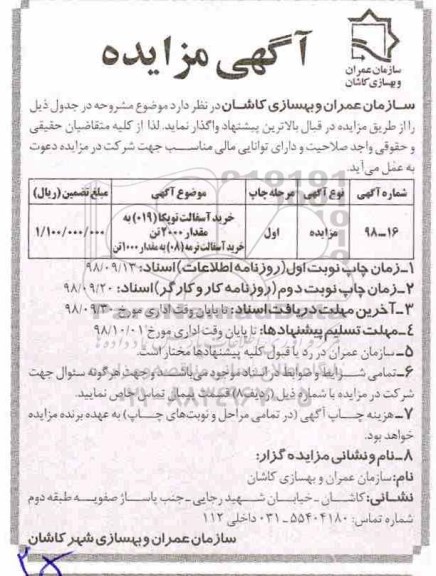 سازمان عمران
و بهسازی کاشان
آگهی مزایده
سازمان عمران و بهسازی کاشان در نظر دارد موضوع مشروحه در جدول ذیل
را از طریق مزایده در قبال بالاترین پیشنهاد واگذار نماید. لذا از کلیه متقاضیان حقیقی
و حقوقی واجد صلاحیت و دارای توانایی مالی مناسب جهت شرکت در مزایده دعوت
به عمل می‌آید.
شماره آگهی نوع آگهی مرحله چاپ موضوع آگهی مبلغ تضمین (ریال)
۱۶-۹۸ مزایده اول خرید آسفالت توپکا (۰۱۹) به مقدار ۲۰۰۰ تن ۱/۱۰۰/۰۰۰/۰۰۰
خرید آسفالت نرمه (۰۸) به مقدار ۱۰۰۰ تن
۱-زمان چاپ نوبت اول (روزنامه اطلاعات) اسناد: ۹۸/۰۹/۱۳
۲-زمان چاپ نوبت دوم (روزنامه کار و کارگر) اسناد: ۹۸/۰۹/۲۰
۳-آخرین مهلت دریافت اسناد: تا پایان وقت اداری مورخ ۹۸/۰۹/۳۰
۴-مهلت تسلیم پیشنهادها: تا پایان وقت اداری مورخ ۹۸/۱۰/۰۱
۵-سازمان عمران در رد یا قبول کلیه پیشنهادها مختار است.
۶-تمامی شرایط و ضوابط در اسناد موجود می‌باشد و جهت هرگونه سئوال جهت
شرکت در مزایده با شماره ذیل (ردیف ۸) قسمت پیمان تماس حاصل نمایید.
۷-هزینه چاپ آگهی (در تمامی مراحل و نوبت‌های چاپ) به عهده برنده مزایده
خواهد بود.
۸-نام و نشانی مزایده گزار:
نام: سازمان عمران و بهسازی کاشان
نشانی: کاشان - خیابان شهید رجایی - جنب پاساژ صفویه - طبقه دوم
شماره تماس: ۵۵۴۰۴۱۸۰-۰۳۱ داخلی ۱۱۲
سازمان عمران و بهسازی شهر کاشان